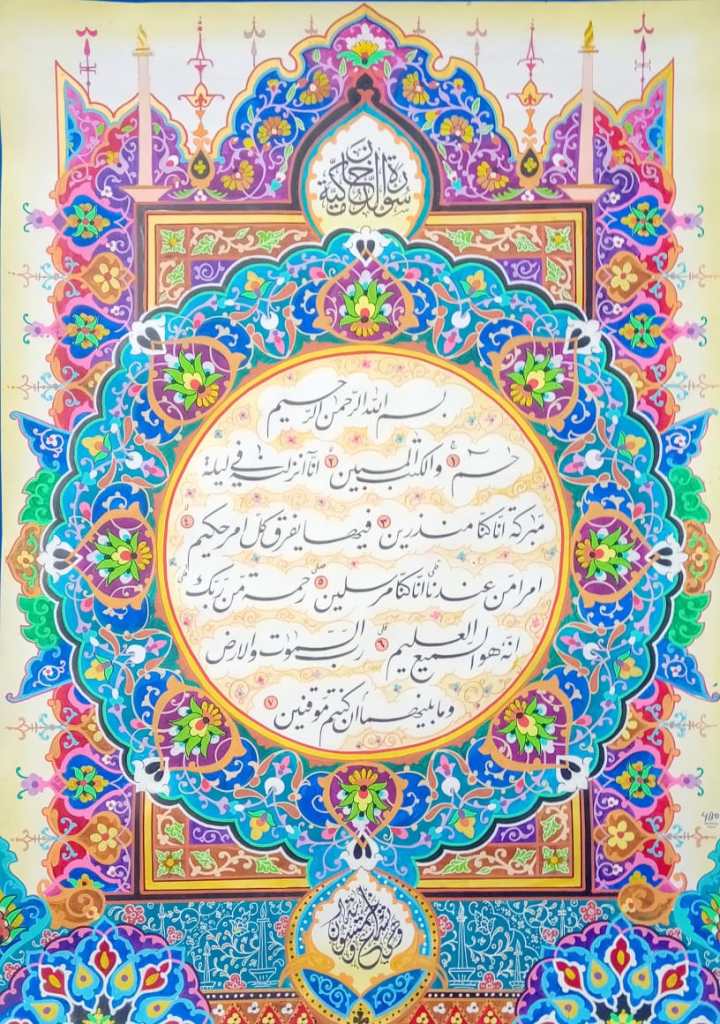 سورة الدخان مكية
بسم الله الرحمن الرحيم
حم ١ والكتب المبين ٢ انا انزلنه في ليلة
مبركة انا كنا منذرين ٣ فيها يفرق كل امر حكيم ٤
امرا من عندنا انا كنا مرسلين ٥ رحمة من ربك
انه هو السميع العليم ٦ رب السموت والارض
وما بينهما ان كنتم موقنين ٧
وهي تسع وخمسون اية